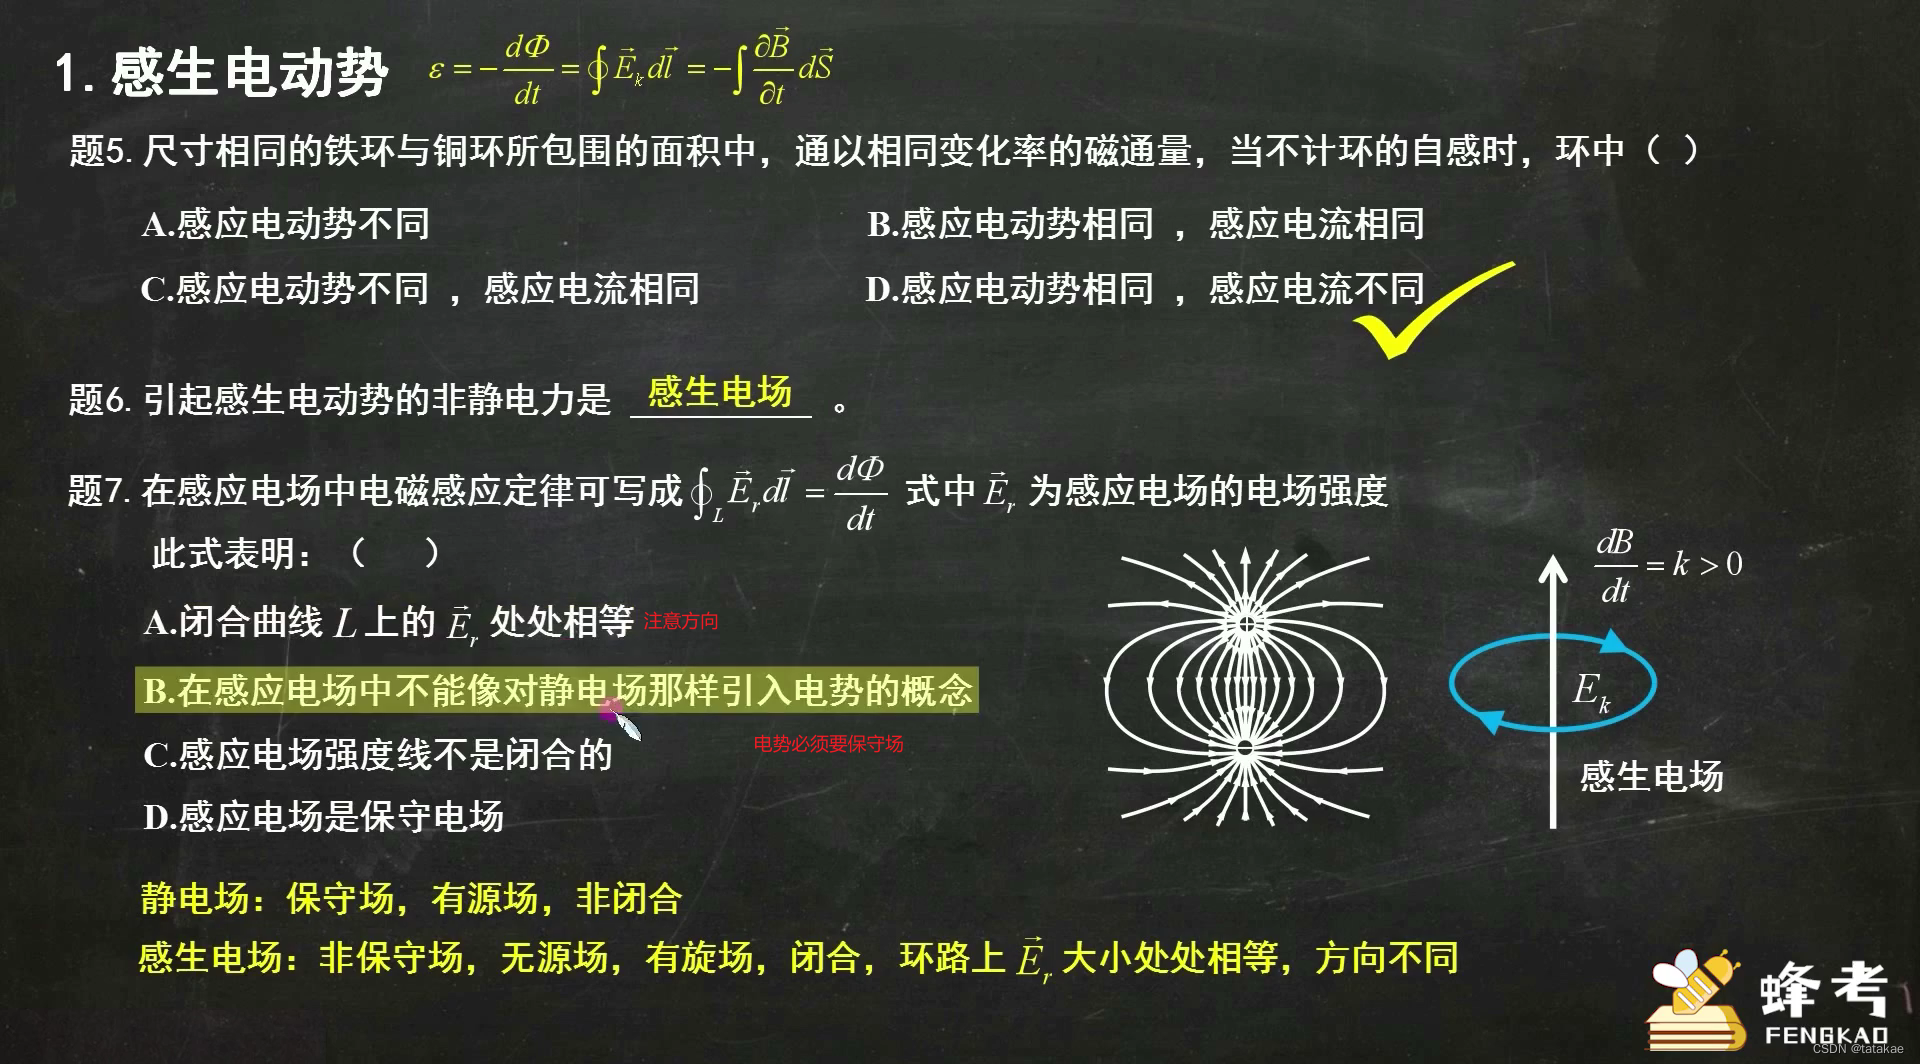 1. 感生电动势 ε = −dΦ/dt = ∮E⃗ₖdl⃗ = −∫∂B⃗/∂t dS⃗
题5. 尺寸相同的铁环与铜环所包围的面积中，通以相同变化率的磁通量，当不计环的自感时，环中（ ）
A.感应电动势不同 B.感应电动势相同 ，感应电流相同
C.感应电动势不同 ，感应电流相同 D.感应电动势相同 ，感应电流不同
题6. 引起感生电动势的非静电力是 感生电场 。
题7. 在感应电场中电磁感应定律可写成 ∮_L E⃗ᵣdl⃗ = dΦ/dt 式中 E⃗ᵣ 为感应电场的电场强度
此式表明：（ ）
A.闭合曲线 L 上的 E⃗ᵣ 处处相等 注意方向
B.在感应电场中不能像对静电场那样引入电势的概念
电势必须要保守场
C.感应电场强度线不是闭合的
D.感应电场是保守电场
dB/dt = k > 0
Eₖ
感生电场
静电场：保守场，有源场，非闭合
感生电场：非保守场，无源场，有旋场，闭合，环路上 E⃗ᵣ 大小处处相等，方向不同
蜂考
FENGKAO
CSDN @tatakae